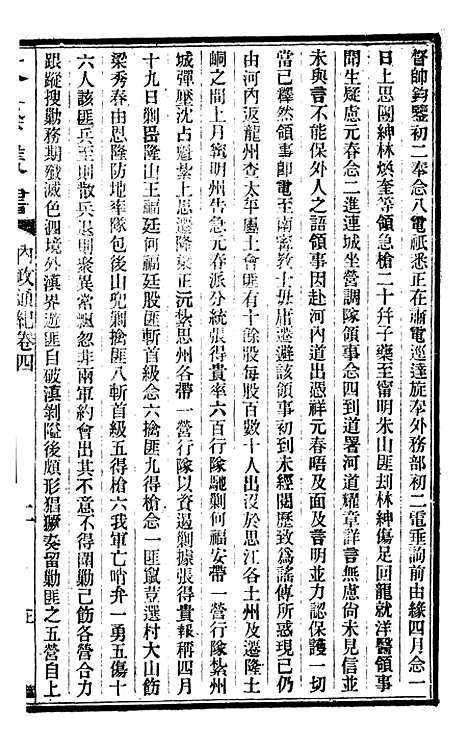 督帥鈞鑒初二奉念八電祇悉正在肅電逕達旋奉外務部初二電垂詢前由緣四月念一
日上思闗紳林煥奎等領急槍二十幷子藥至甯明朱山匪刦林紳傷足回龍就洋醫領事
聞生疑慮元春念二進連城坐營調隊領事念四到道署河道耀章詳書無慮尙未見信並
未與書不能保外人之語領事因赴河內道出憑祥元春晤及面書明並力認保護一切
當已釋然領事卽電至南甯敎士毋庸遷避該領事初到未經閱歷致爲謠傳所惑現已仍
由河內返龍州查太平屬土會匪有十餘股每股百數十人出沒於思江各土州及遷隆土
峒之間上月甯明州告急元春派分統張得貴率六百行隊馳剿何福安帶一營行隊紮州
城彈壓沈占魁紮上思遷隆梁正沅紮思州各帶一營行隊以資遏剿據張得貴報稱四月
十九日剿區隆山王福廷何福廷股匪斬首級念六擒匪九得槍念一匪竄荳選村大山飭
梁秀春由恩隆防地率隊包後山兜剿擒匪八斬首級五得槍六我軍亡哨弁一勇五傷十
六人該匪兵至則散兵退則聚異常飄忽非兩軍約會出其不意不得圍勦已飭各營合力
跟蹤搜勦務期殲滅色泗境外滇界遊匪自破滇剝隘後頗形猖獗奏留勦匪之五營自上
內政通紀卷四